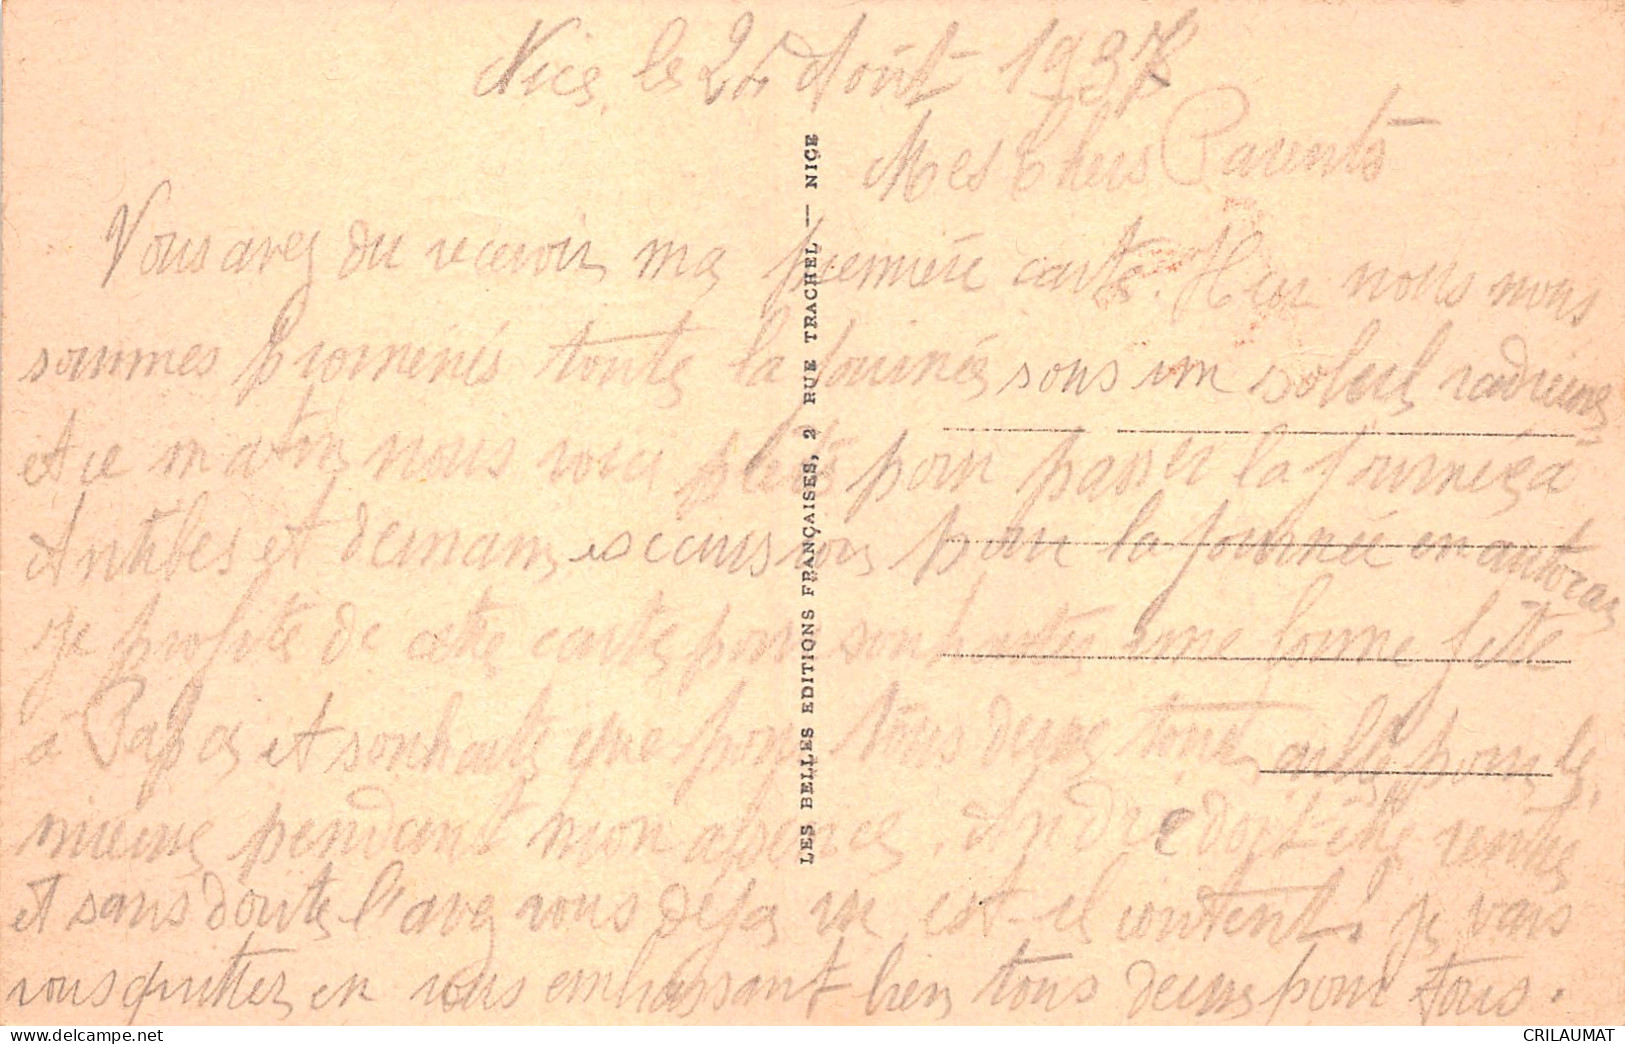 Nice, le 24 Août 1937
Mes Chers Parents
Vous avez du recevoir ma première carte. Hier nous nous
sommes promenés toute la journée sous un soleil radieux
et ce matin nous voici prêts pour passer la journée à
Antibes et demain excursion pour la journée en autocar
Je profite de cette carte pour souhaiter une bonne fête
à Papa et souhaite que pour tous deux tout aille pour le
mieux pendant mon absence. André doit-être rentré
et sans doute l'avez vous déjà vu est-il content? Je vais
vous quitter en vous embrassant bien tous deux pour tous.
LES BELLES EDITIONS FRANÇAISES, 2 RUE TRACHEL — NICE
CRILAUMAT